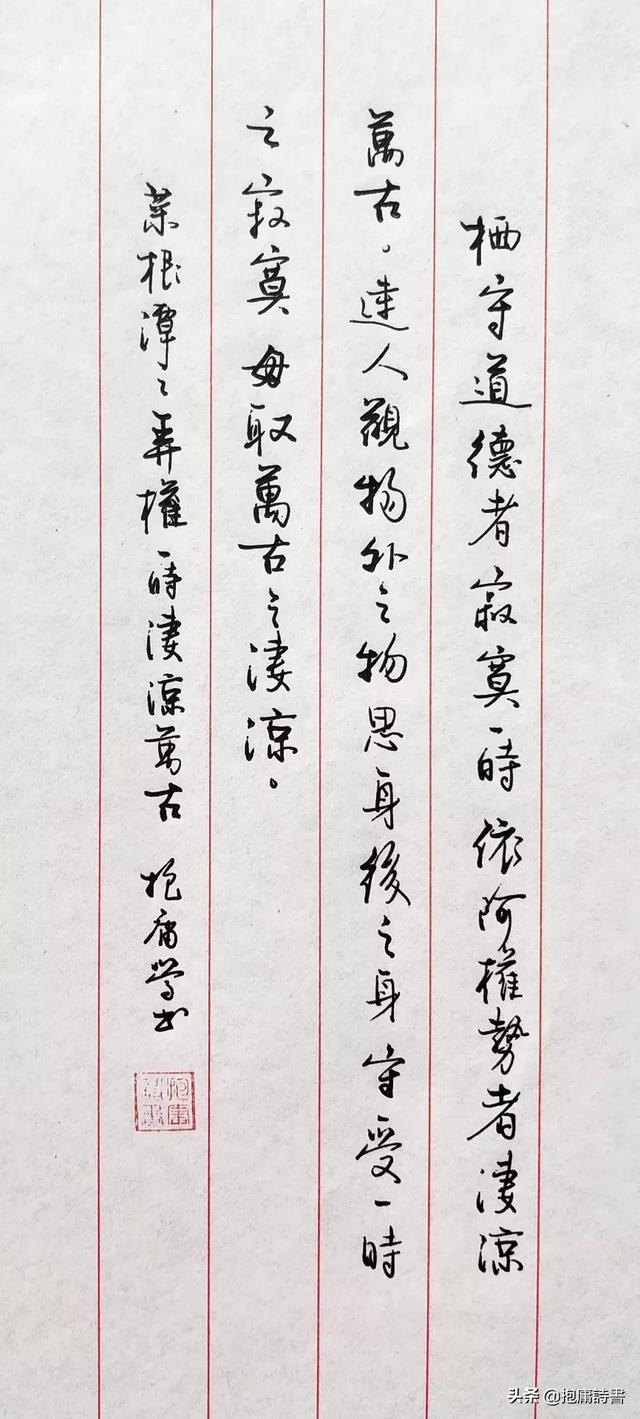 栖守道德者寂寞一時依阿權勢者淒涼
萬古。達人觀物外之物思身後之身守受一時
之寂寞毋取萬古之淒涼。
菜根潭之弄權一時淒涼萬古 抱庸學書
抱庸詩書
头条 @抱庸詩書